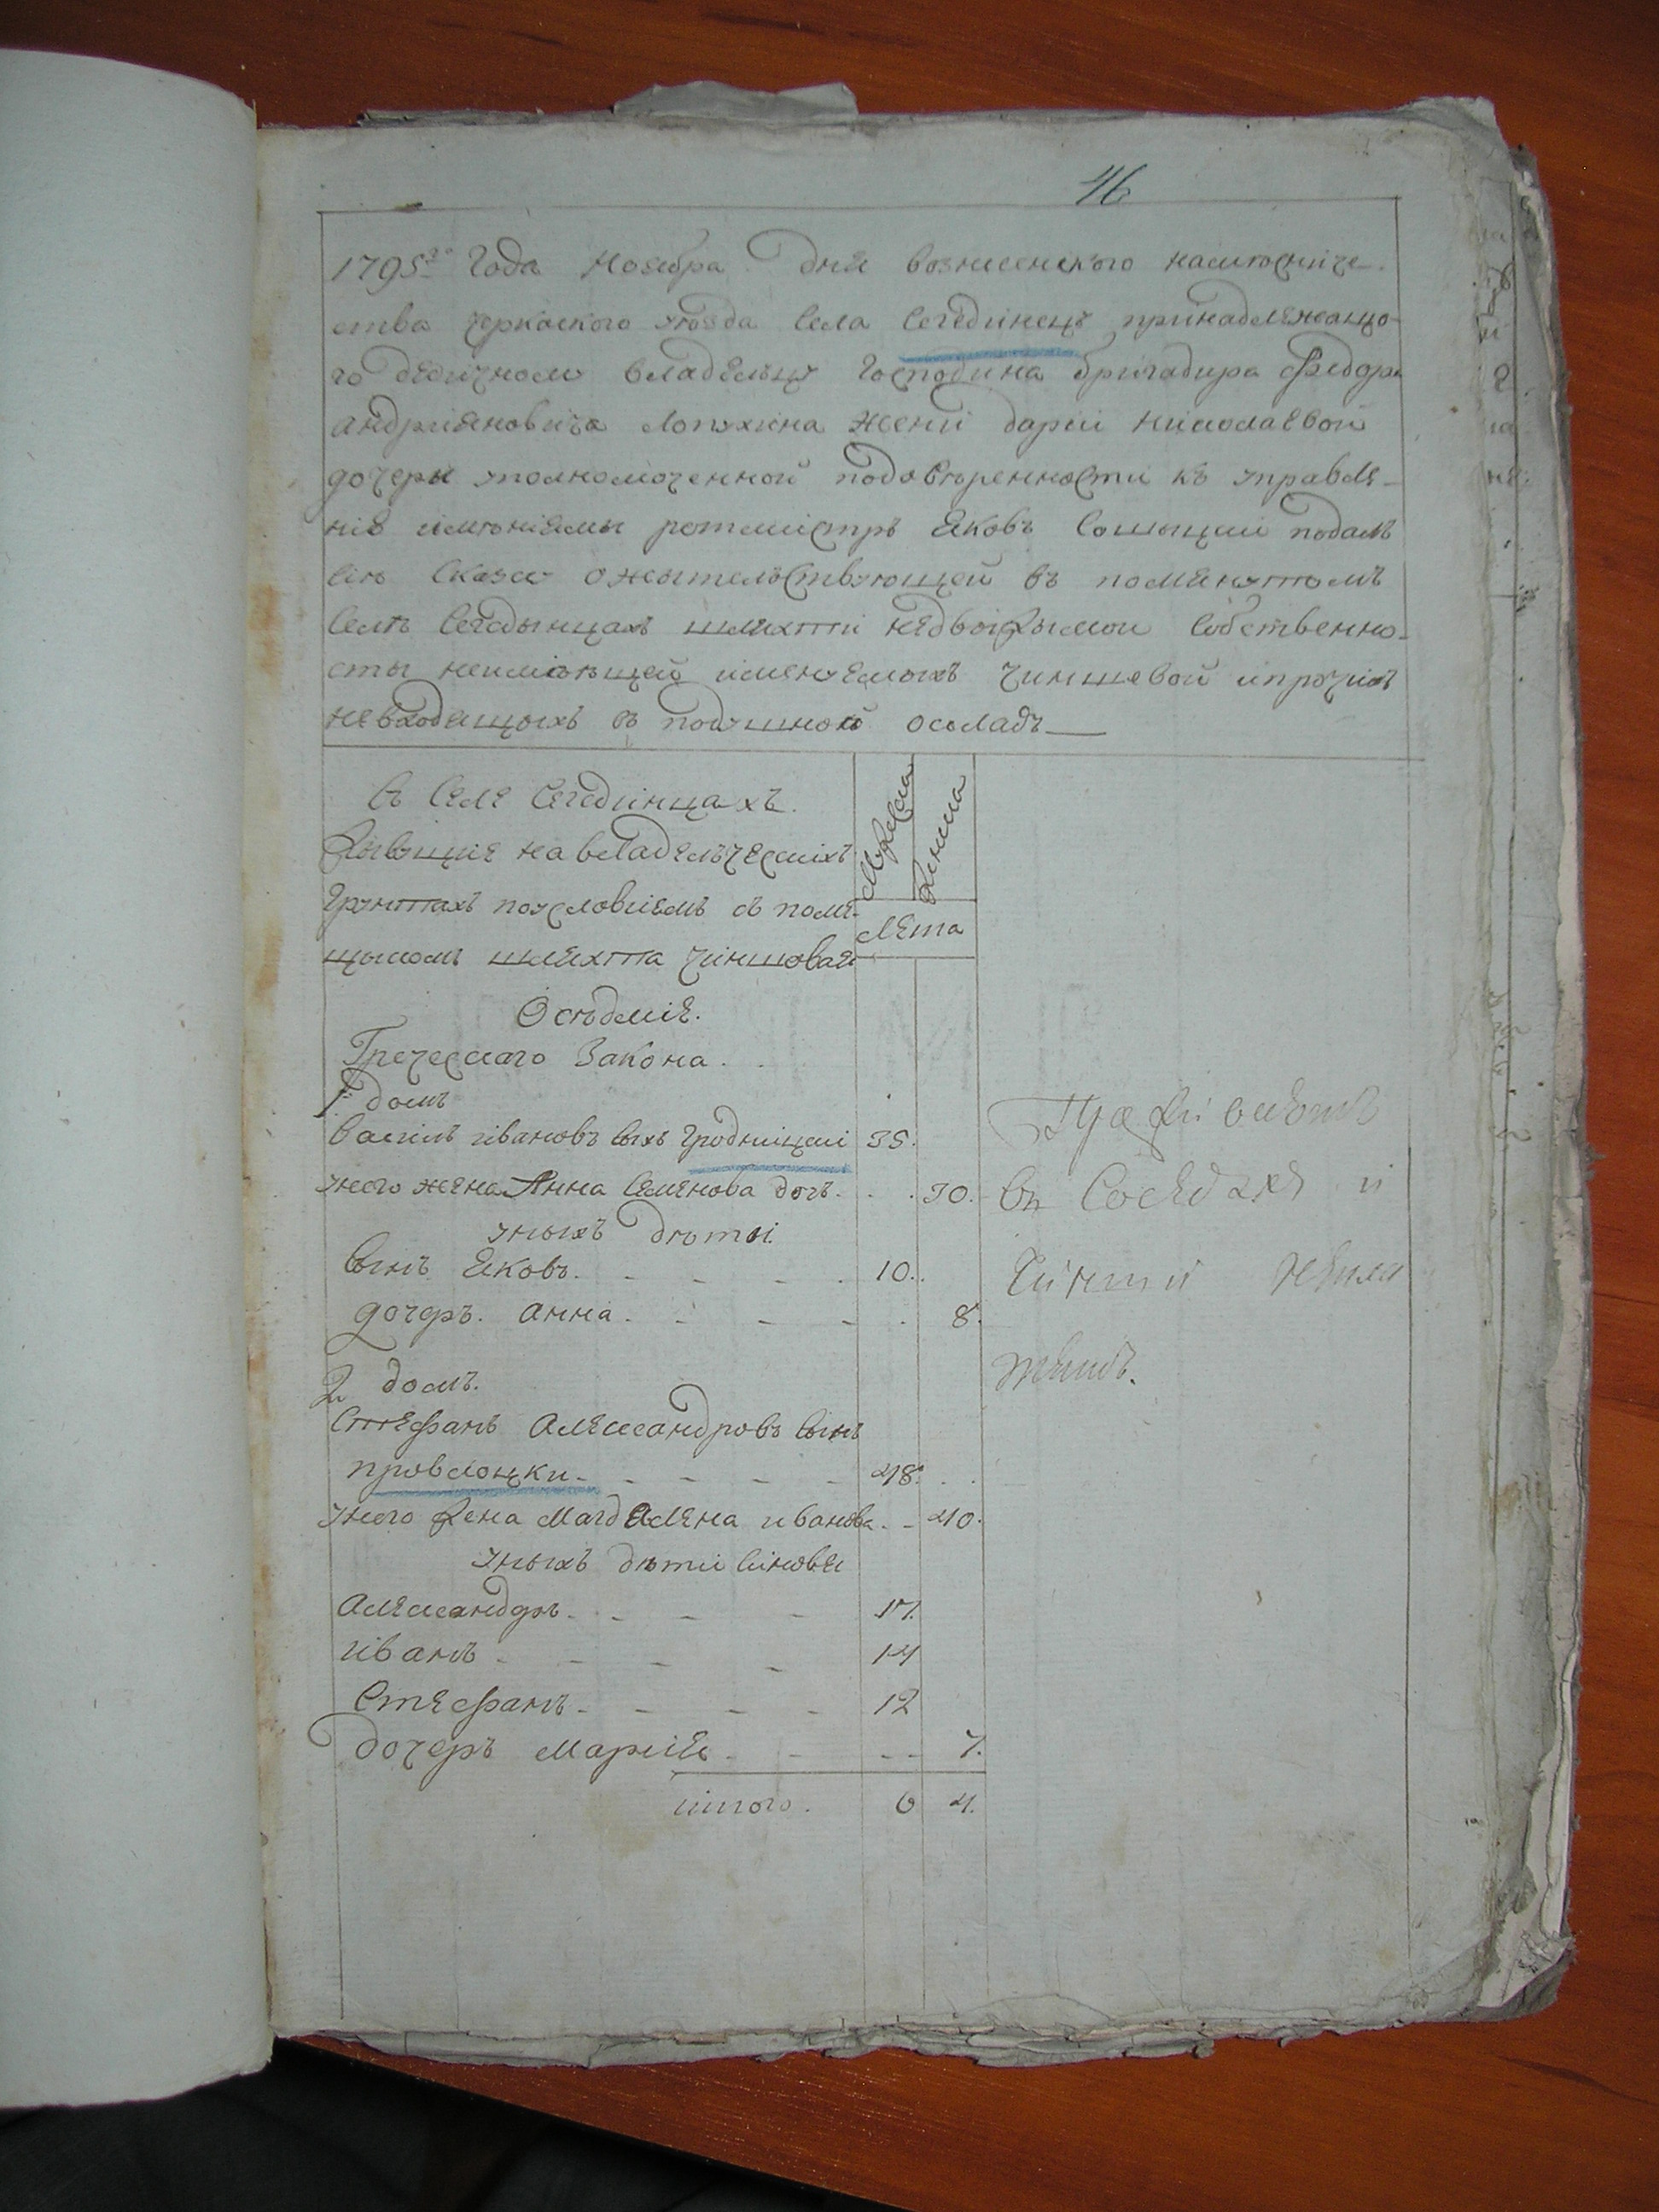 46
1795го года Ноября дня вознесенского намѣстниче-
ства черкаского уѣзда села Сегединецъ принадлежащо-
го дедичному владельцу Господина бригадира Федора
андрияновича Лопухина жени дарии николаевой
дочери уполномоченной по доверенности къ управле-
ние имѣниемы ротмистръ Яковъ подалъ
сию скаску о жытелствующей въ помянутомъ
селѣ Сегединцахъ шляхти недвожымой собственно-
сты неимѣющей именуемыхъ чиншевой и прочихъ
невходящыхъ въ подушной окладъ
В селе Сегединцахъ.
Живущие на владелъческихъ
Грунтахъ по условиемъ съ поме-
щыкомъ шляхта чиншовая
Мужеска
Женска
Лета
Осѣдлие.
Греческаго Закона.
1й домъ
Василь ивановъ сынъ Гродницкий 35.
у него жена Анна Семенова дочь 30.
у ныхъ дѣти
сынъ Яковъ. 10.
дочеръ. анна. 8.
2 домъ.
Стефанъ Александровъ сынъ
провлоцки 48.
у него жена Магдалена иванова. 40.
у ныхъ дѣти синовя
Александръ. 17.
иванъ 14
Стефанъ 12
дочеръ Мария 7.
итого. 6 4.
въ и